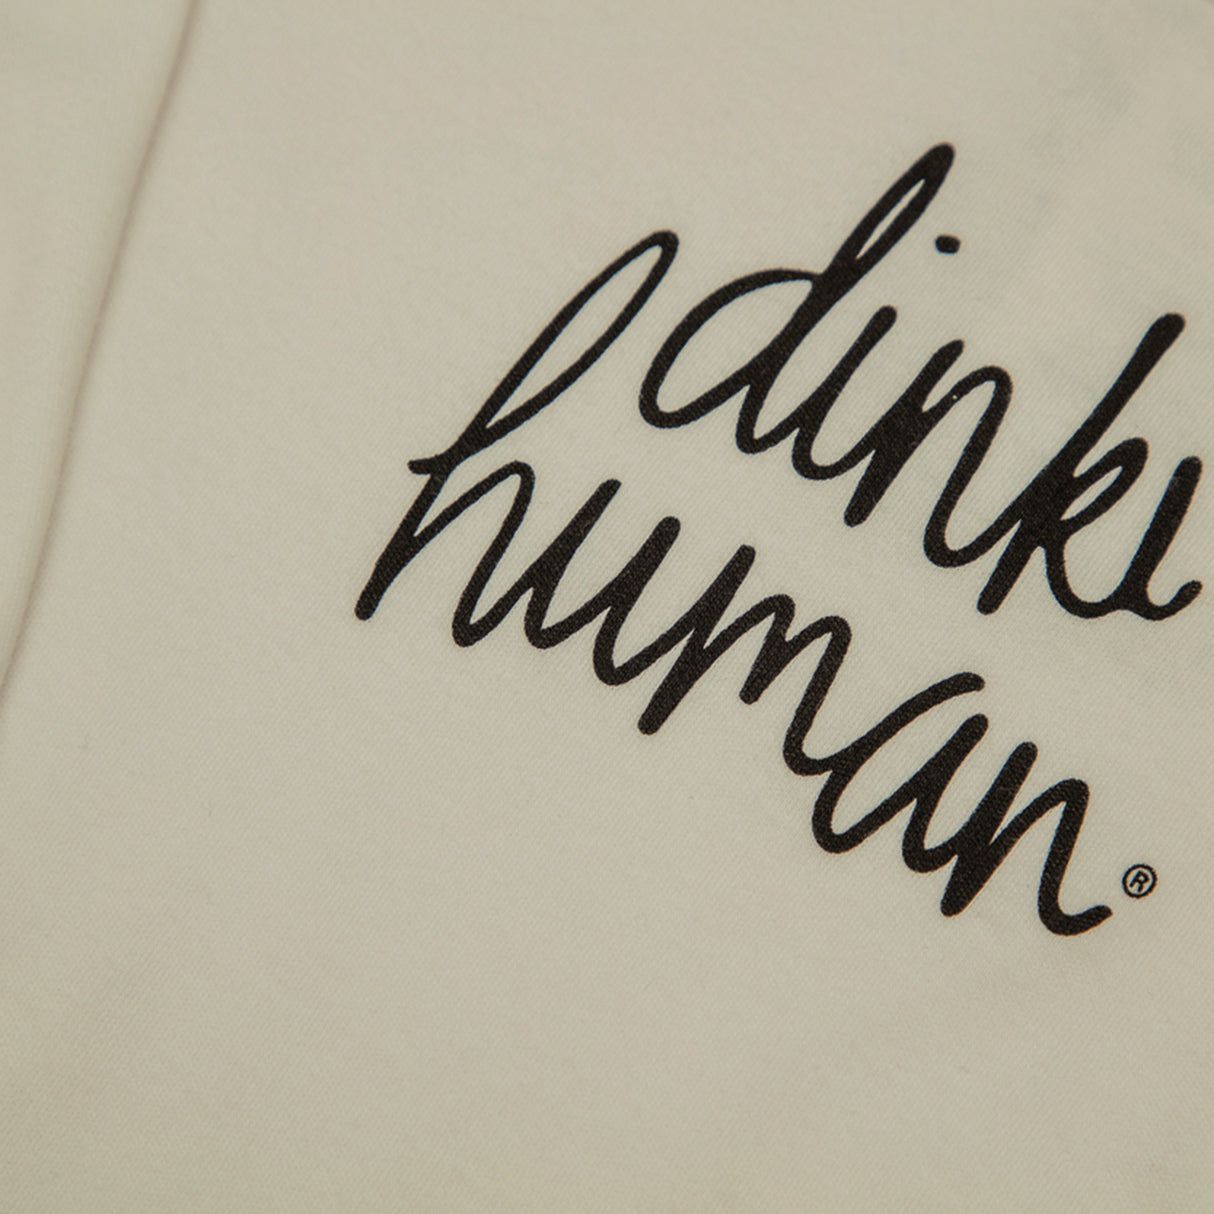 dinki
human®